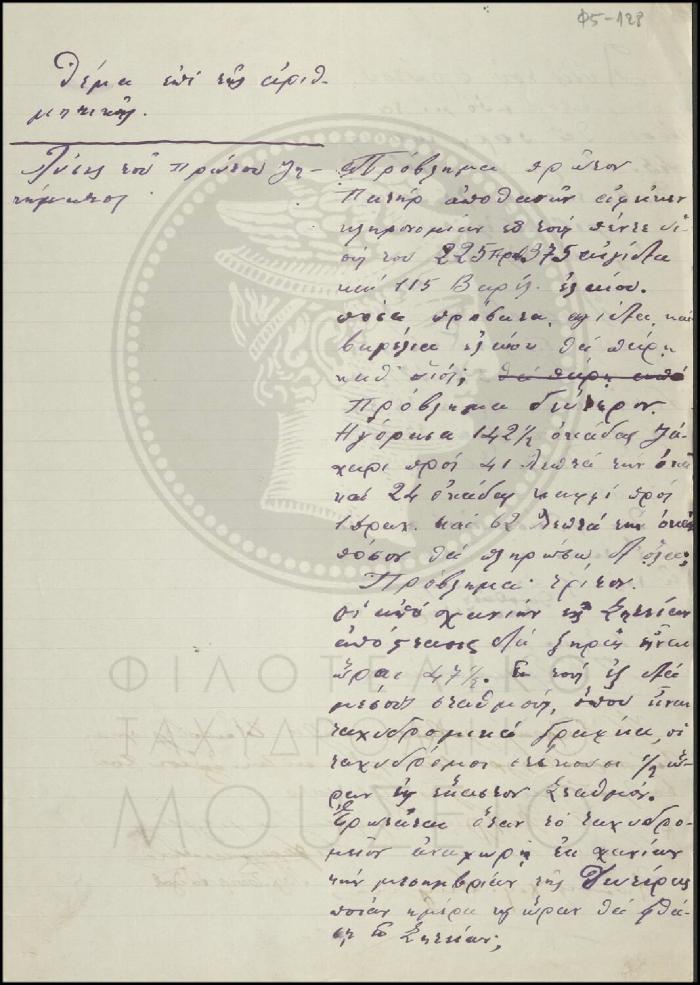 Φ5-128
Θέμα ἐπὶ τῆς ἀριθ-
μητικῆς.
Λύσις τοῦ πρώτου ζη-
τήματος
Πρόβλημα πρῶτον
Πατὴρ ἀποθανὼν ἀφῆκεν
κληρονομίαν εἰς τοὺς πέντε υἱ-
ούς του 225 πρόβ. 375 αἰγίδια
καὶ 115 Βαρέλ. ἐλαίου.
πόσα πρόβατα, αἰγίδια, καὶ
βαρέλια ἐλαίου θὰ πάρῃ
καθ' εἷς; θὰ πάρῃ ἀπὸ
Πρόβλημα δεύτερον.
Ἠγόρασα 142 1/2 ὀκάδας ζά-
χαρι πρὸς 41 λεπτὰ τὴν ὀκᾶ
καὶ 24 ὀκάδας καφὲ πρὸς
1 δραχ. καὶ 62 λεπτὰ τὴν ὀκᾶ
πόσον θὰ πληρώσω δι' ὅλα;
Πρόβλημα τρίτον.
Ἡ ἀπὸ Χανίων εἰς Σητείαν
ἀπόστασις διὰ ξηρᾶς εἶναι
ὧραι 47 1/2. Εἰς τοὺς ἓξ διὰ
μέσου σταθμούς, ὅπου εἶναι
ταχυδρομικὰ γραφεῖα, οἱ
ταχυδρόμοι στέκουσι 1/2 ὥ-
ραν εἰς ἕκαστον σταθμόν.
Ἐρωτᾶται ὅταν τὸ ταχυδρο-
μεῖον ἀναχωρῇ ἐκ Χανίων
τὴν μεσημβρίαν τῆς Δευτέρας
ποίαν ἡμέραν καὶ ὥραν θὰ φθά-
σῃ εἰς Σητείαν;
ΦΙΛΟΤΕΛΙΚΟ
ΤΑΧΥΔΡΟΜΙΚΟ
ΜΟΥΣΕΙΟ